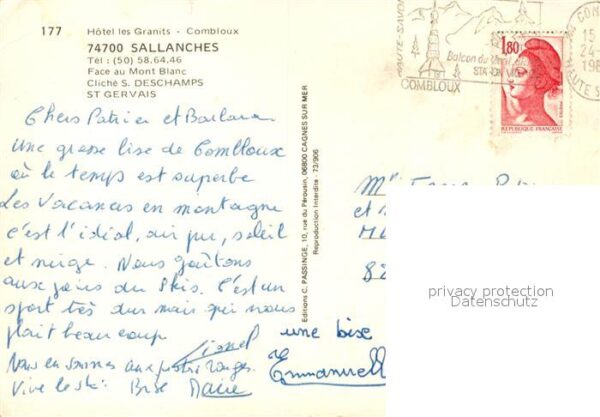 177 Hôtel les Granits - Combloux
74700 SALLANCHES
Tél : (50) 58.64.46
Face au Mont Blanc
Cliché S. DESCHAMPS
ST GERVAIS
Chers Patrick et Barbara
Une grosse bise de Combloux
où le temps est superbe
Les Vacances en montagne
c'est l'idéal, air pur, soleil
et neige. Nous goûtons
aux joies du skis. C'est un
sport très dur mais qui nous
plait beaucoup
Lionel
Nous en sommes aux pistes rouges.
Vive le ski Bise Marie
une bise
Emmanuelle
Editions C. PASSINGE, 10, rue du Pérousin, 06800 CAGNES SUR MER
Reproduction Interdite - 73/906
HAUTE-SAVOIE
COMBLOUX
1,80
REPUBLIQUE FRANÇAISE
15
24
HAUTE S
et
82
privacy protection
Datenschutz